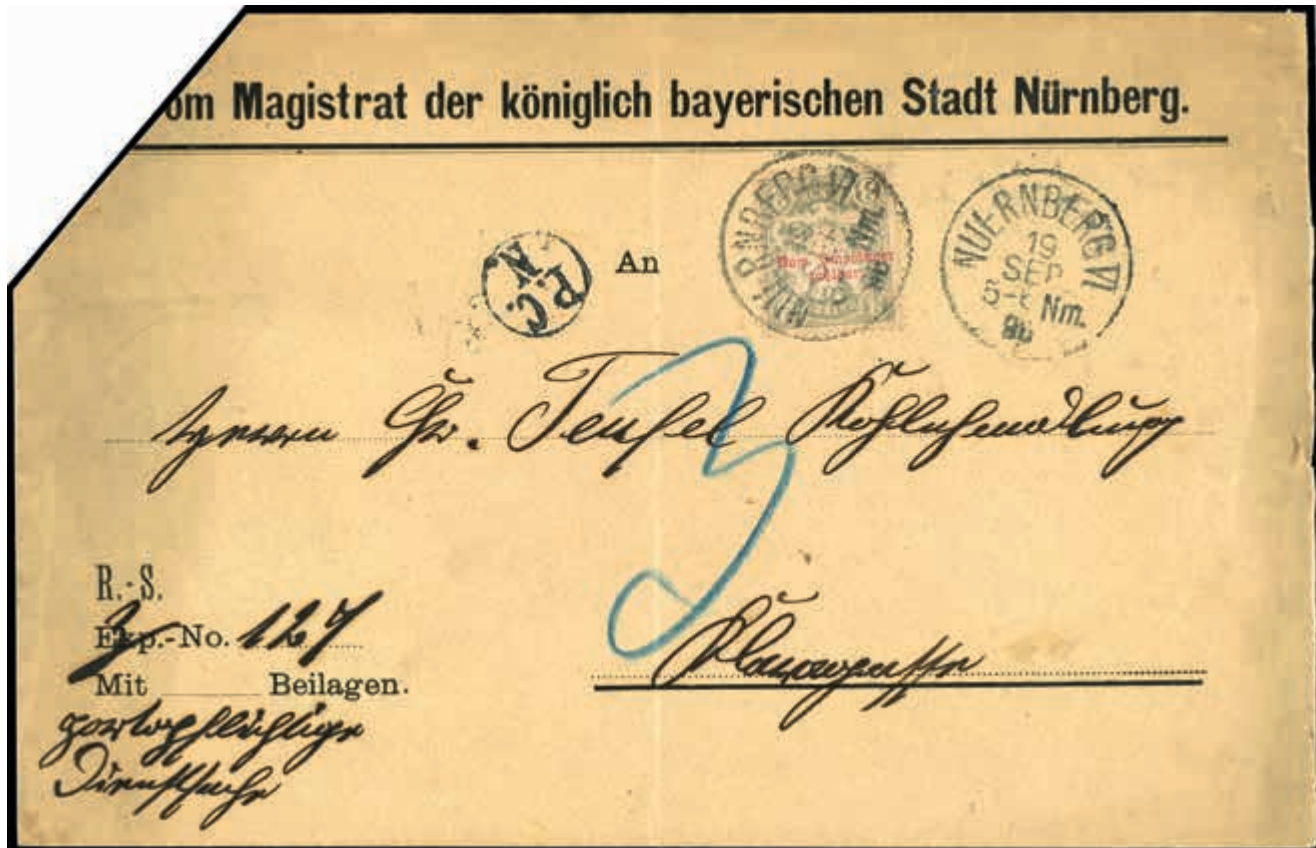 om Magistrat der königlich bayerischen Stadt Nürnberg.
P.C.
N.
An
NUERNBERG VI
19
SEP
Nm.
Vom Empfänger
zahlbar
3
Herrn Chr. Teufel Kohlenhandlung
R.-S.
Exp.-No. 127
Mit Beilagen.
portopflichtige
Dienstsache